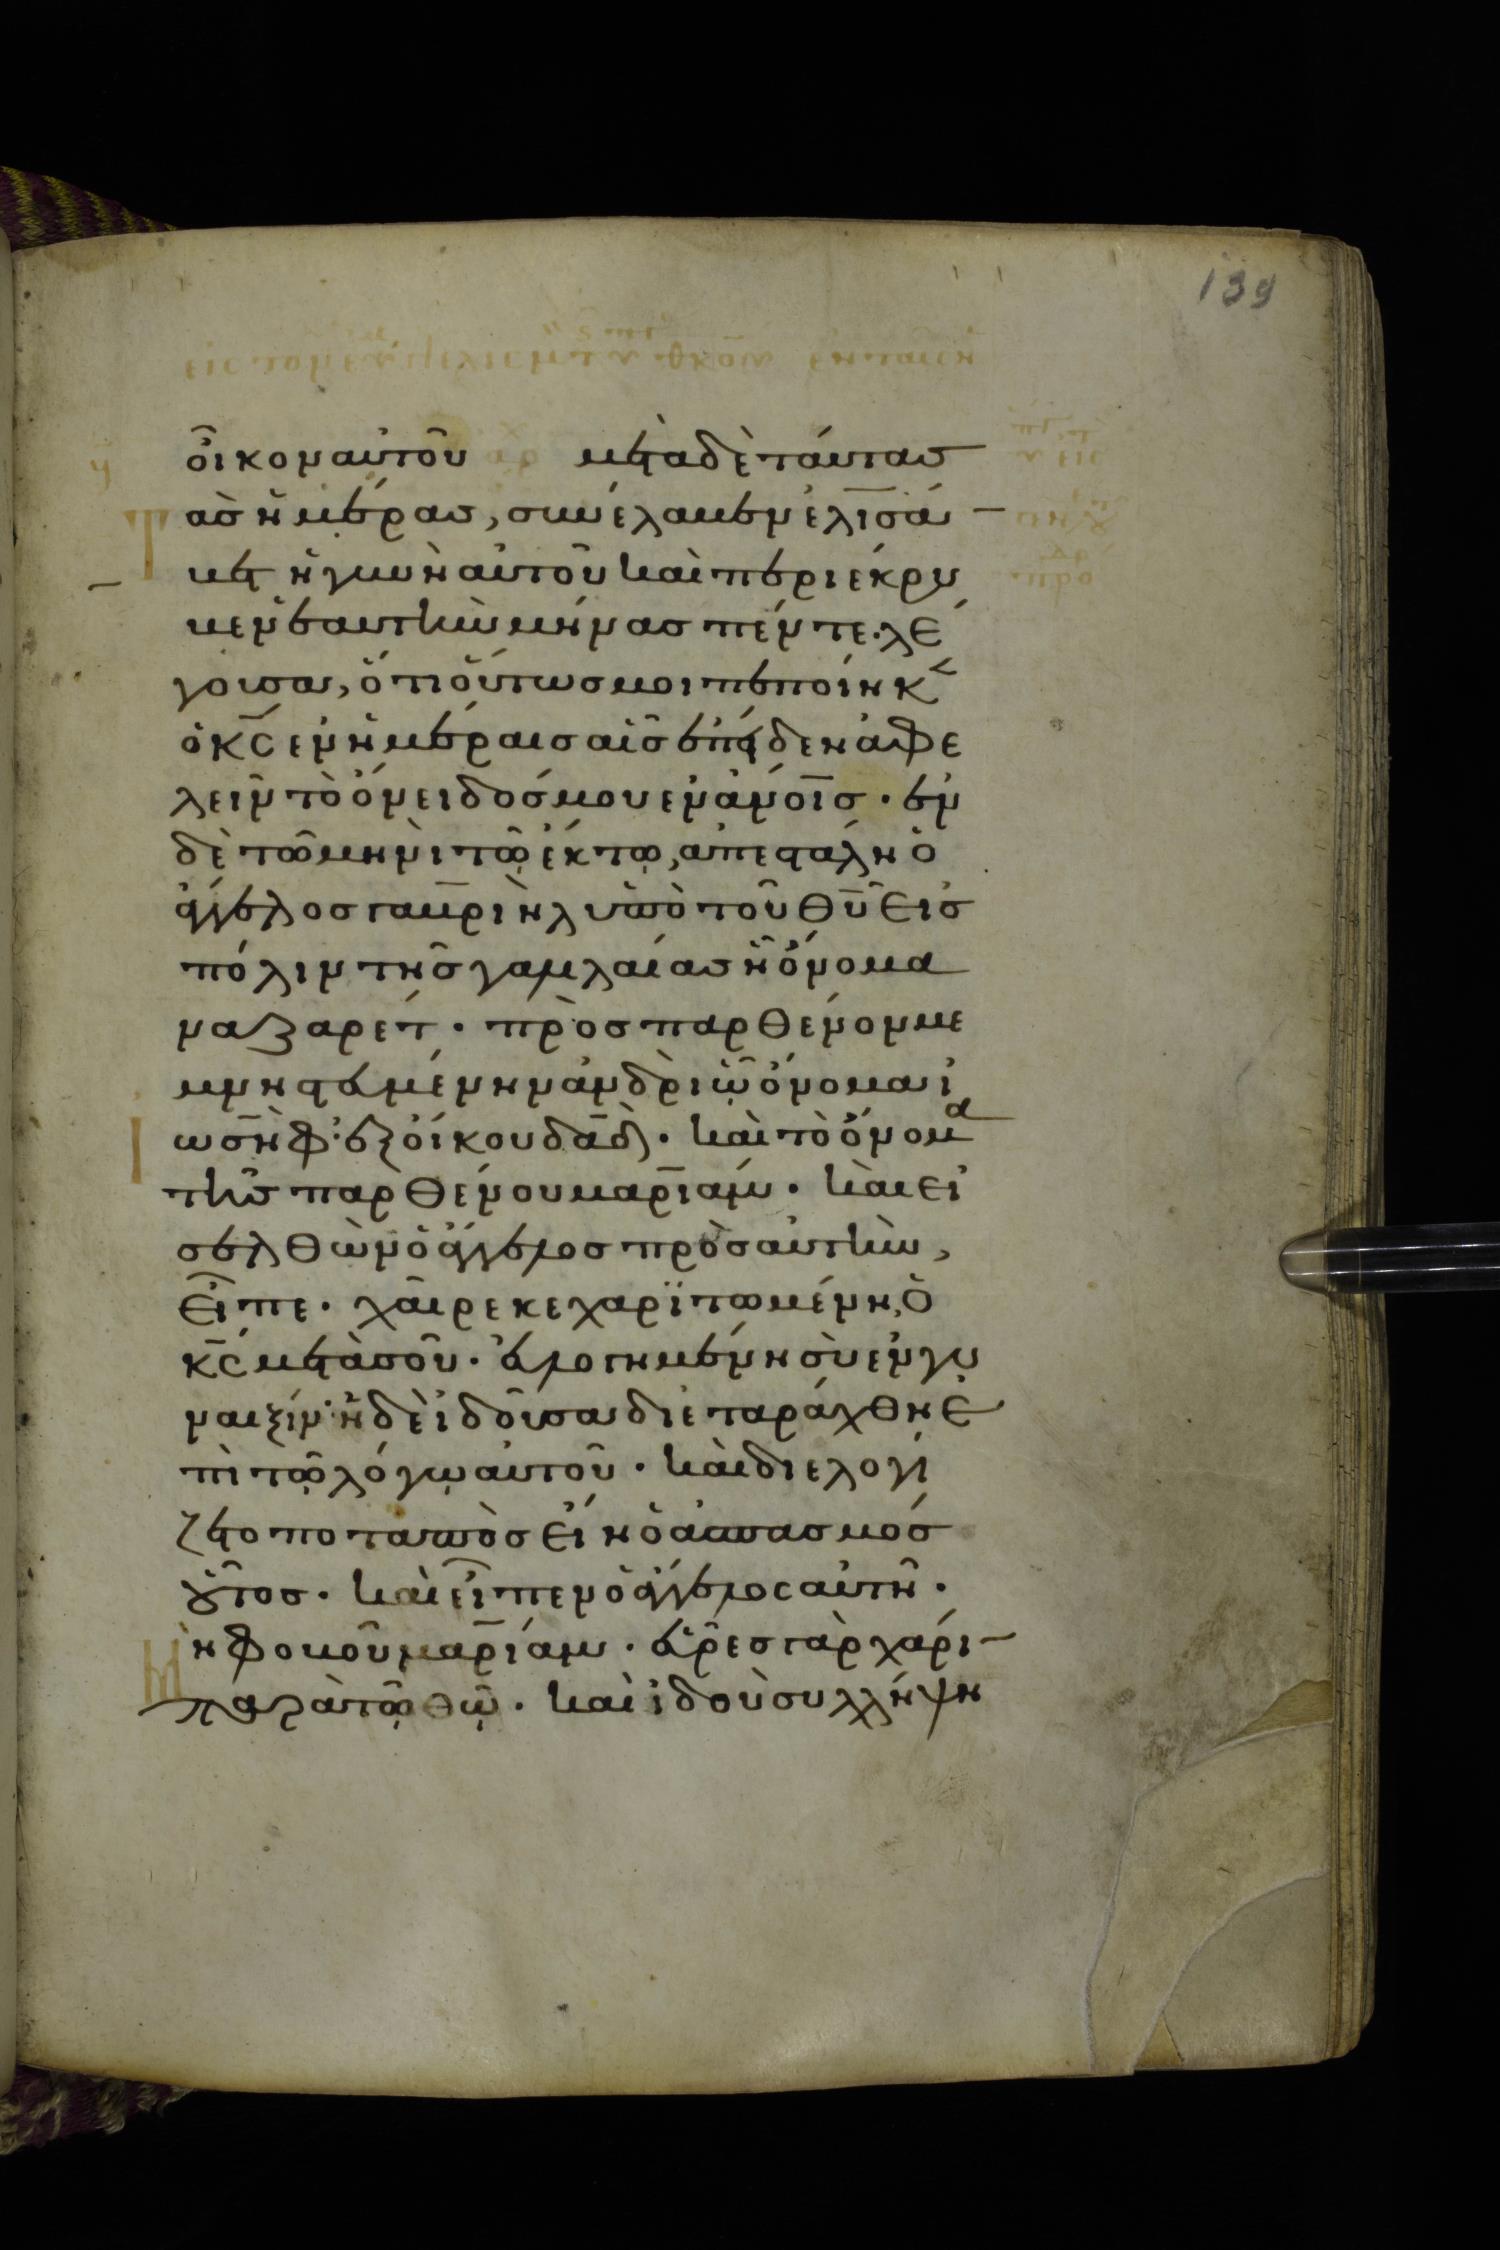 139
οἶκον αὐτοῦ μετὰ δὲ ταύτας
ἀσ ἡμέρας, συνέλαβεν ἐλισά
βετ ἡ γυνὴ αὐτοῦ καὶ περιέκρυ
βεν ἑαυτὴν μήνας πέντε. λέ
γουσα, ὅτι οὕτως μοι πεποίηκ
ὁ κ̅ς ἐν ἡμέραις αἷς ἐπεῖδεν ἀφε
λεῖν τὸ ὄνειδός μου ἐν ἀν̅οις · ἐν
δὲ τῶ μηνὶ τῷ ἕκτῳ, ἀπεστάλη ὁ
ἄγγελος γαβριὴλ ὑπὸ τοῦ θ̅υ εἰς
πόλιν τῆς γαλιλαίας ἧ ὄνομα
ναζαρέτ · πρὸς παρθένον με
μνηστευμένην ἀνδρὶ ᾧ ὄνομα ἰ
ωσὴφ · ἐξ οἴκου δα̅δ · καὶ τὸ ὄνομα
τῆς παρθένου μαριάμ · καὶ εἰ
σελθὼν ὁ ἄγγελος πρὸς αὐτὴν,
εἶπε · χαῖρε κεχαρϊτωμένη, ὁ
κ̅ς μετὰ σοῦ · εὐλογημένη σὺ ἐν γυ
ναιξίν · ἡ δὲ ἰδοῦσα διεταράχθη ἐ
πὶ τῷ λόγῳ αὐτοῦ · καὶ διελογί
ζετο ποταπὸς εἴη ὁ ἀσπασμός
οὗτος · καὶ εἶπεν ὁ ἄγγελος αὐτῆ ·
μὴ φοβοῦ μαριάμ · εὗρες γὰρ χάρι
παρὰ τῷ θῷ · καὶ ἰδοὺ συλλήψη